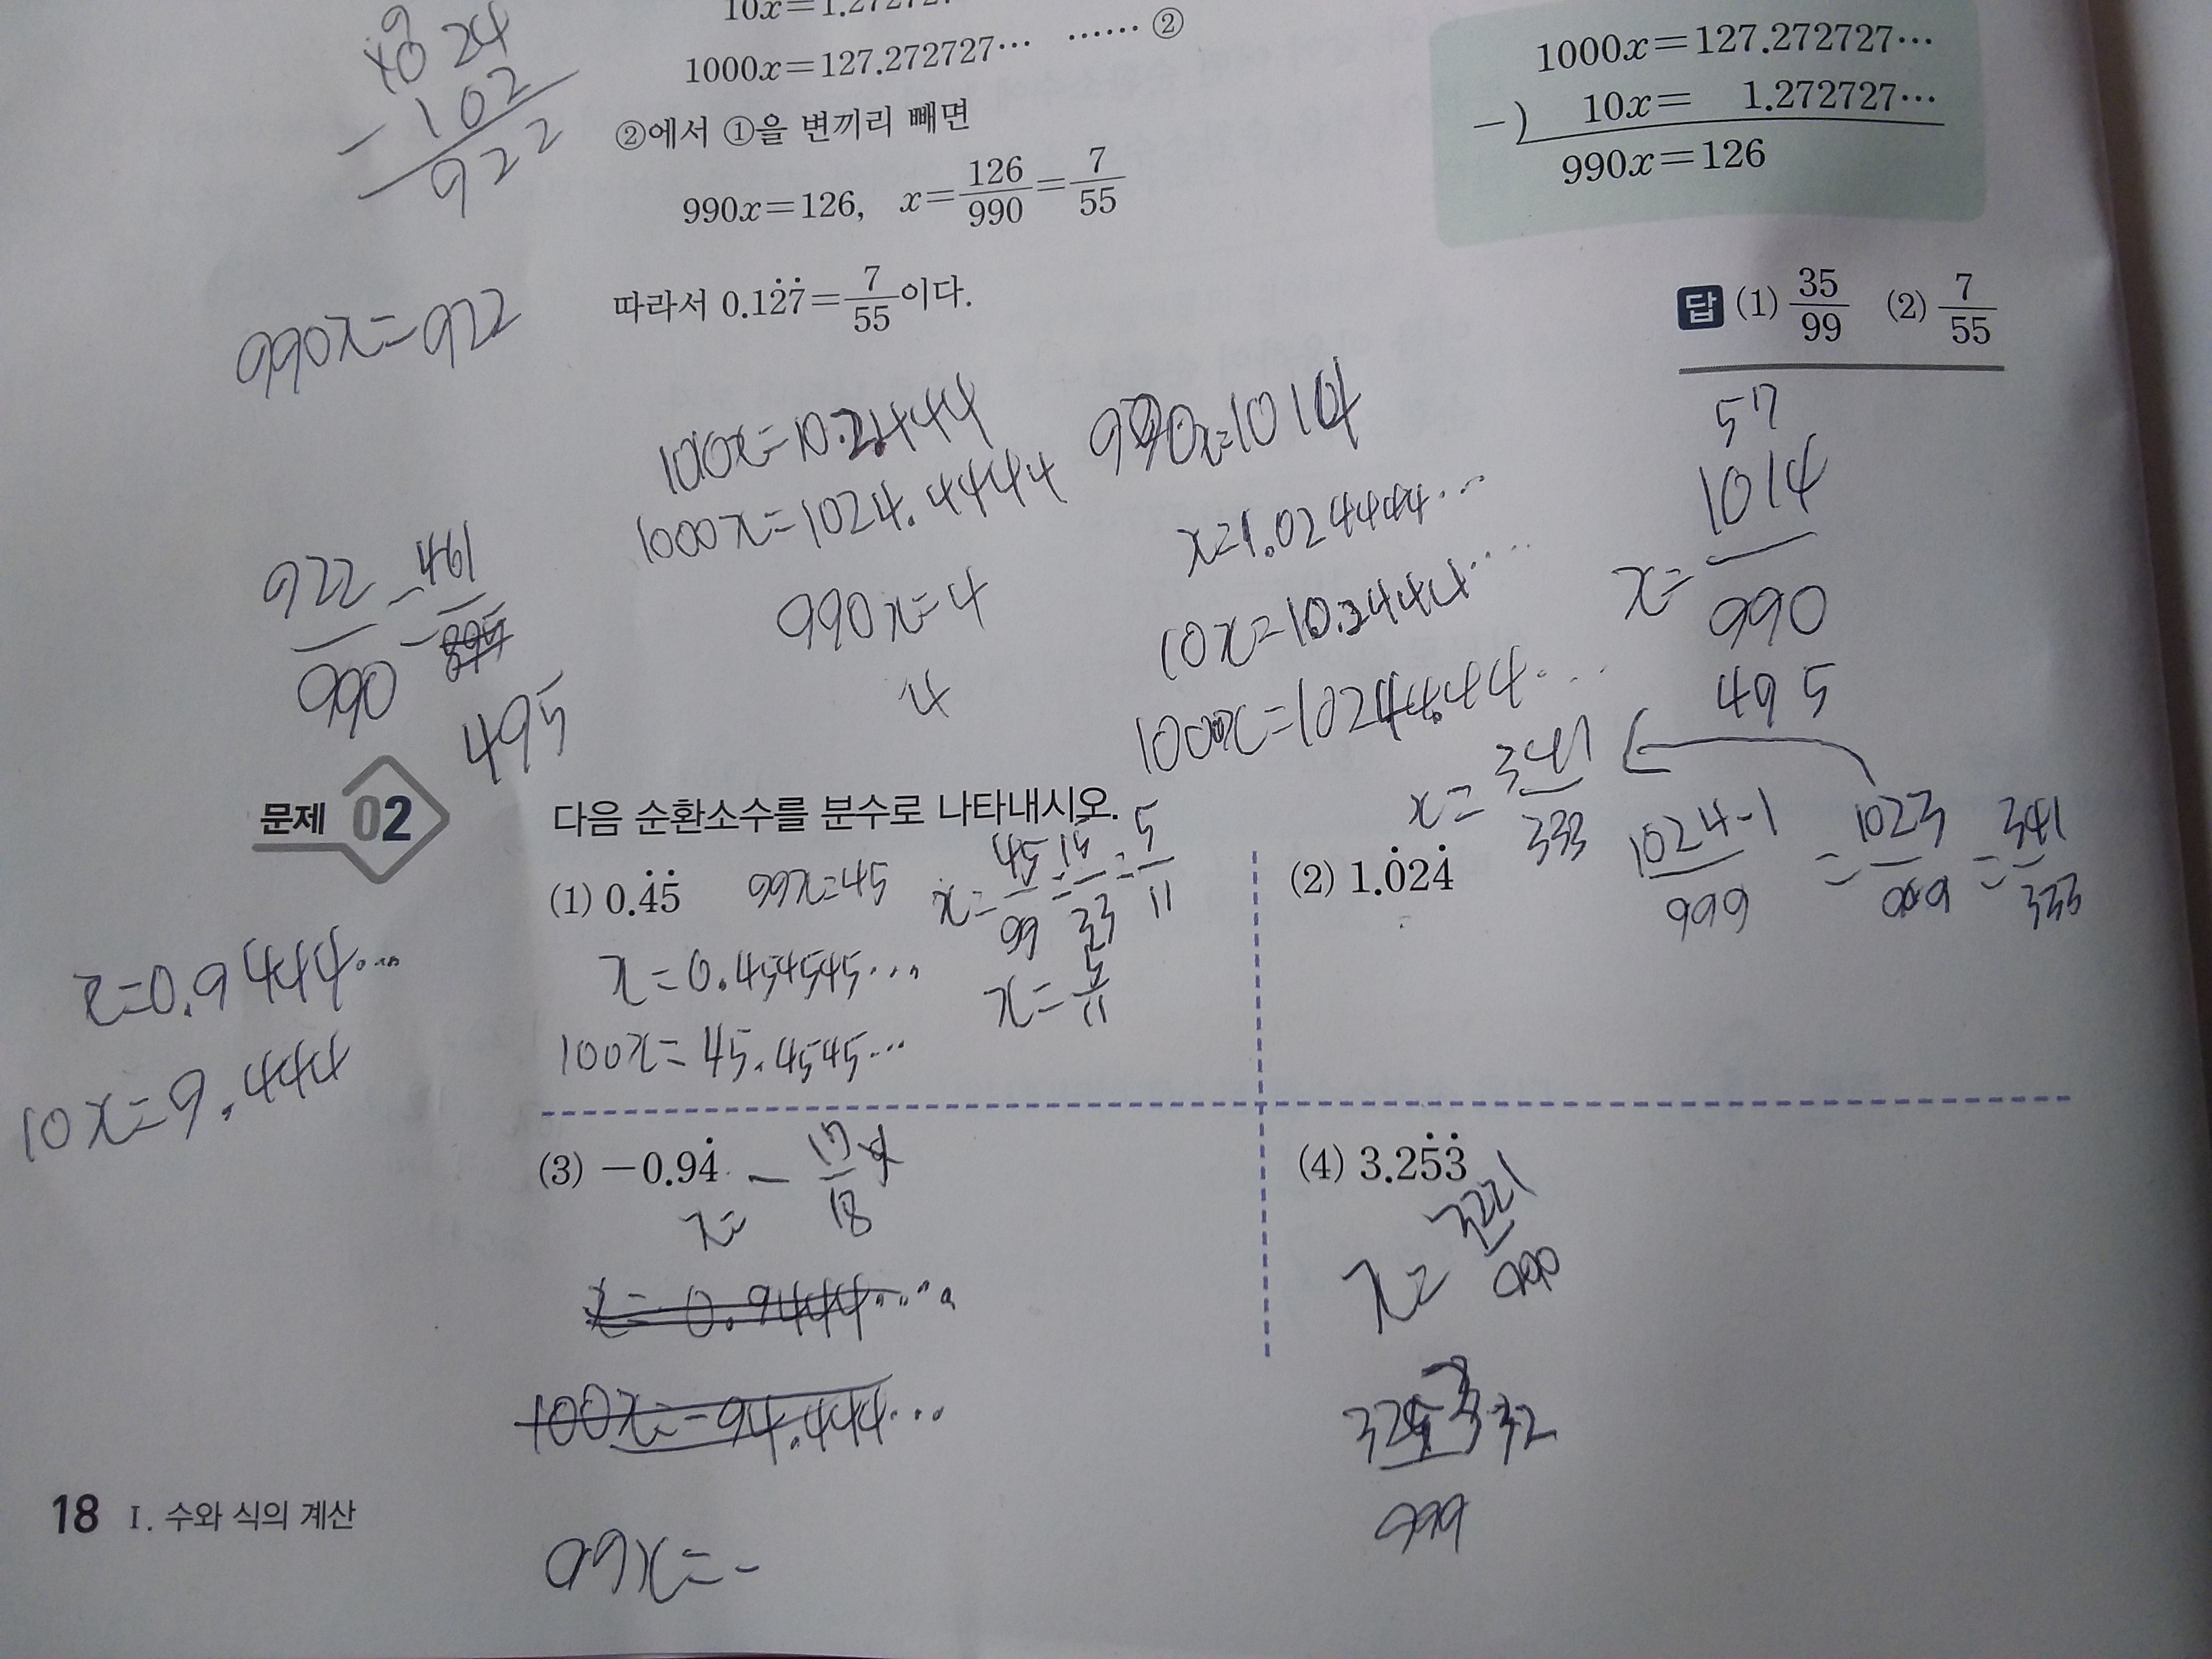 10x=1.272727
1000x=127.272727⋯ ⋯⋯ ②
②에서 ①을 변끼리 빼면
990x=126, x=126/990=7/55
따라서 0.12̇7̇=7/55이다.
1000x=127.272727⋯
−) 10x= 1.272727⋯
990x=126
답 (1) 35/99 (2) 7/55
1024
-102
922
990x=922
922/990 = 461/495
10.2444
1000x=1024.4444
990x=1014
990x=4
4
x=1.024444...
10x=10.2444...
57
1014
x= 990
495
문제 02 다음 순환소수를 분수로 나타내시오.
(1) 0.4̇5̇ 99x=45 x=45/99=15/33=5/11
x=0.454545...
100x=45.4545...
x=5/11
(2) 1.0̇24̇ 1024-1/999 = 1023/999 = 341/333
x=341/333
x=0.9444...
10x=9.444
(3) −0.94̇ - 17/18
x=
x=0.9444....
100x=-94.444...
99x=-
(4) 3.25̇3̇
x=3221/990
32
999
18 Ⅰ. 수와 식의 계산